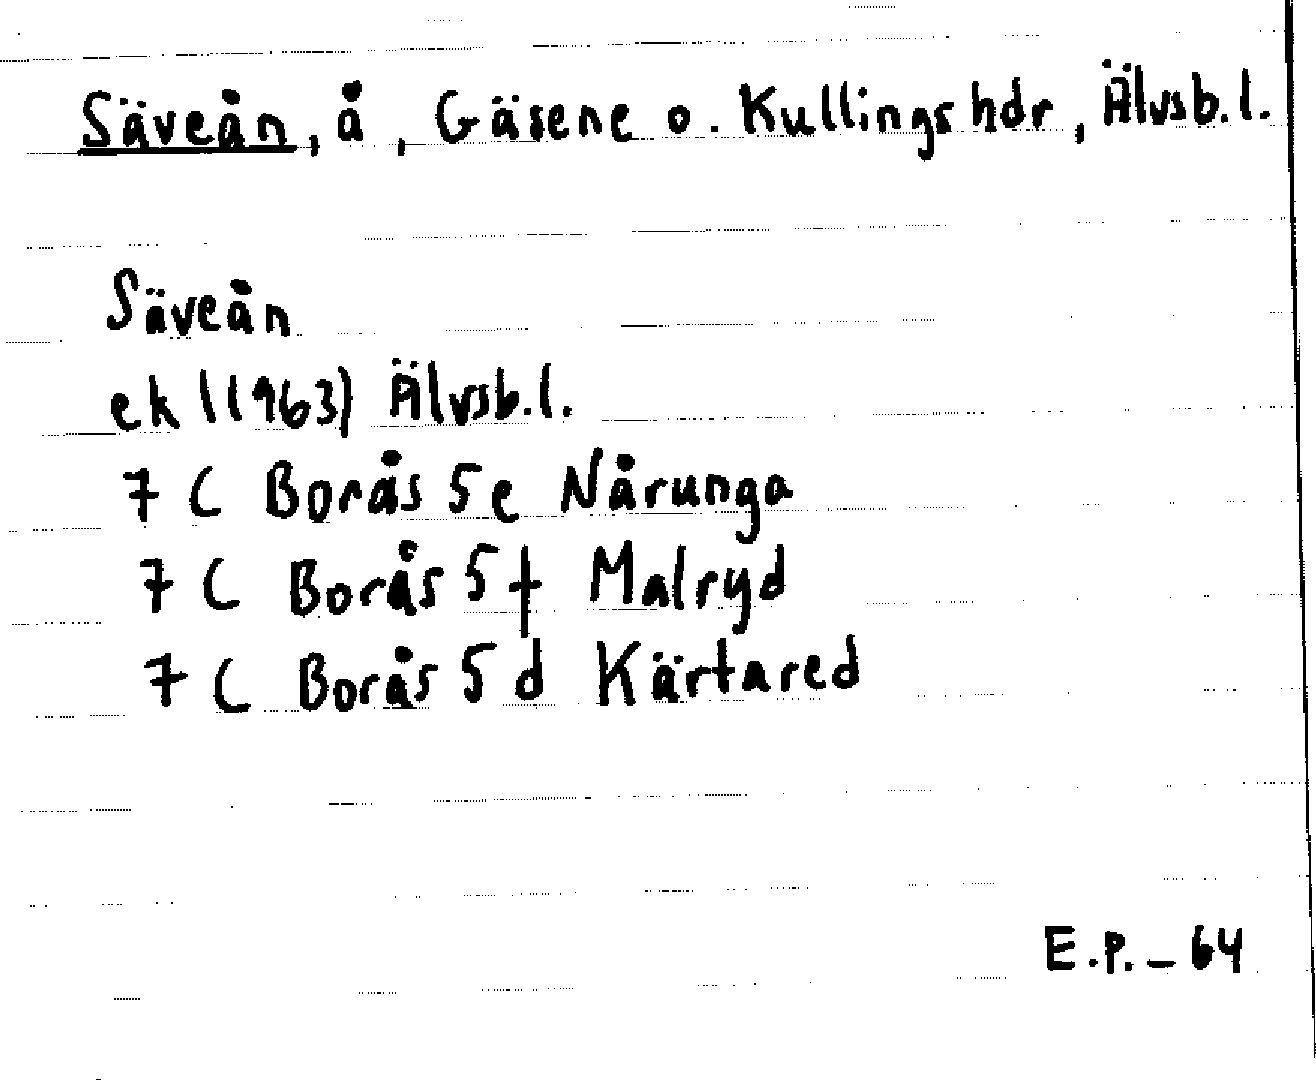 Säveån, å, Gäsene o. Kullings hdr, Älvsb. l.
Säveån
ek l (1963) Älvsb. l.
7 C Borås 5 e Nårunga
7 C Borås 5 f Malryd
7 C Borås 5 d Kärtared
E.P. - 64